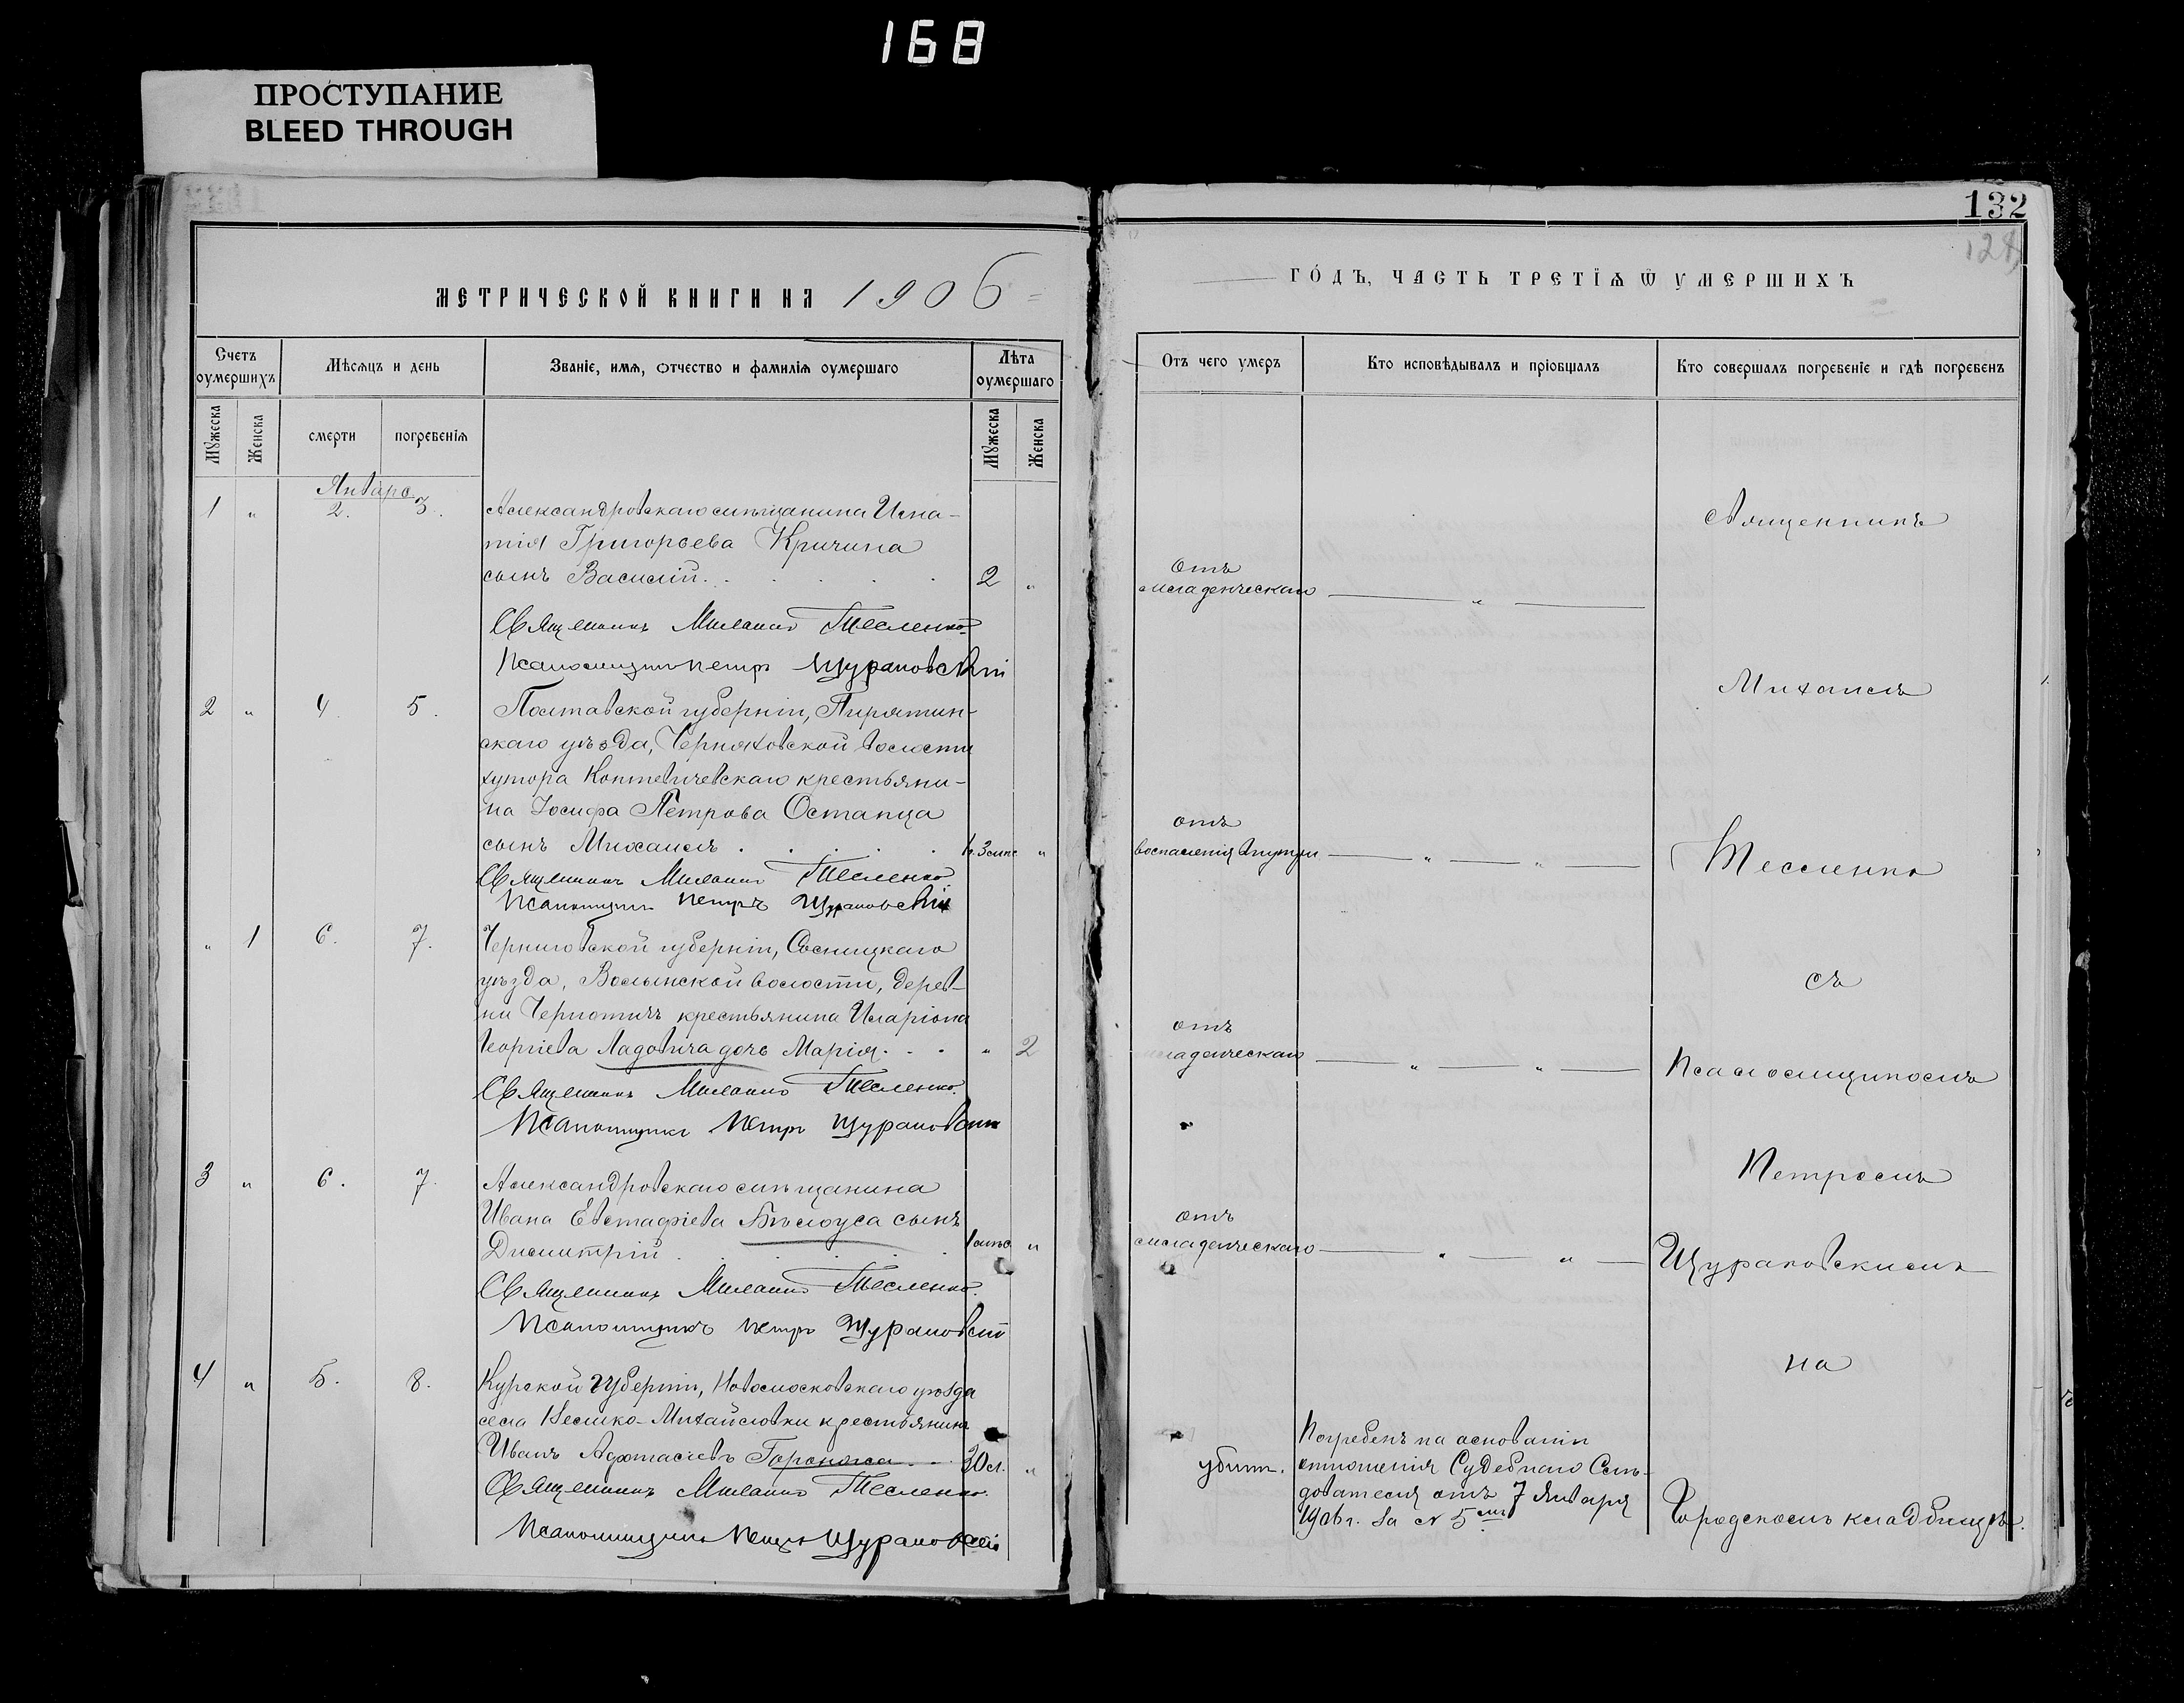 168
ПРОСТУПАНИЕ
BLEED THROUGH
132
128
МЕТРИЧЕСКОЙ КНИГИ НА 1906
ГОДЪ, ЧАСТЬ ТРЕТІѦ Ѿ УМЕРШИХЪ
Счетъ оумершихъ
Мѣсяцъ и день
Званіе, имѧ, отчество и фамиліѧ оумершаго
Лѣта оумершаго
Отъ чего умеръ
Кто исповѣдывалъ и пріобщалъ
Кто совершалъ погребеніе и гдѣ погребенъ
Мужеска
Женска
смерти
погребеніѧ
Мужеска
Женска
Январь
1 " 2. 3. Александровскаго мѣщанина Игна-
тія Григорьева Кричина
сынъ Василій 2 "
Отъ
младенческаго
Священникъ Михаилъ Тесленко
Псаломщикъ Петръ Щурановскій
2 " 4. 5. Полтавской губерніи, Пирятин-
скаго уѣзда, Черняховской волости
хутора Коптевичевскаго крестьяни-
на Іосифа Петрова Остапца
сынъ Михаилъ "
отъ
воспаленія внутри
Священникъ Михаилъ Тесленко
Псаломщикъ Петръ Щурановскій
" 1 6. 7. Черниговской губерніи, Сосницкаго
уѣзда, Волынской волости, дерев-
ни Чернотичъ крестьянина Иларіона
Георгіева Ладовича дочь Марія " 2
отъ
младенческаго
Священникъ Михаилъ Тесленко.
Псаломщикъ Петръ Щурановскій
3 " 6. 7. Александровскаго мѣщанина
Ивана Евстафіева Бѣлоуса сынъ
Димитрій 1 мѣс. "
отъ
младенческаго
Священникъ Михаилъ Тесленко.
Псаломщикъ Петръ Щурановскій
4 " 5. 8. Курской губерніи, Новомосковскаго уѣзда
села Велико-Михайловки крестьянинъ
Иванъ 30 л. "
убитъ.
Погребенъ на основаніи
отношенія Судебнаго Слѣ-
дователя отъ 7 Января
1906 г. за № 5
Священникъ Михаилъ Тесленко.
Псаломщикъ Петръ Щурановскій
Священникъ
Михаилъ
Тесленко
съ
Псаломщикомъ
Петромъ
Щурановскимъ
на
Городскомъ кладбищѣ.